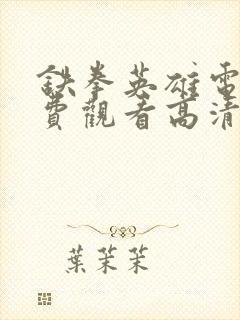 鉄拳英雄電
費觀看高清
葉茉茉